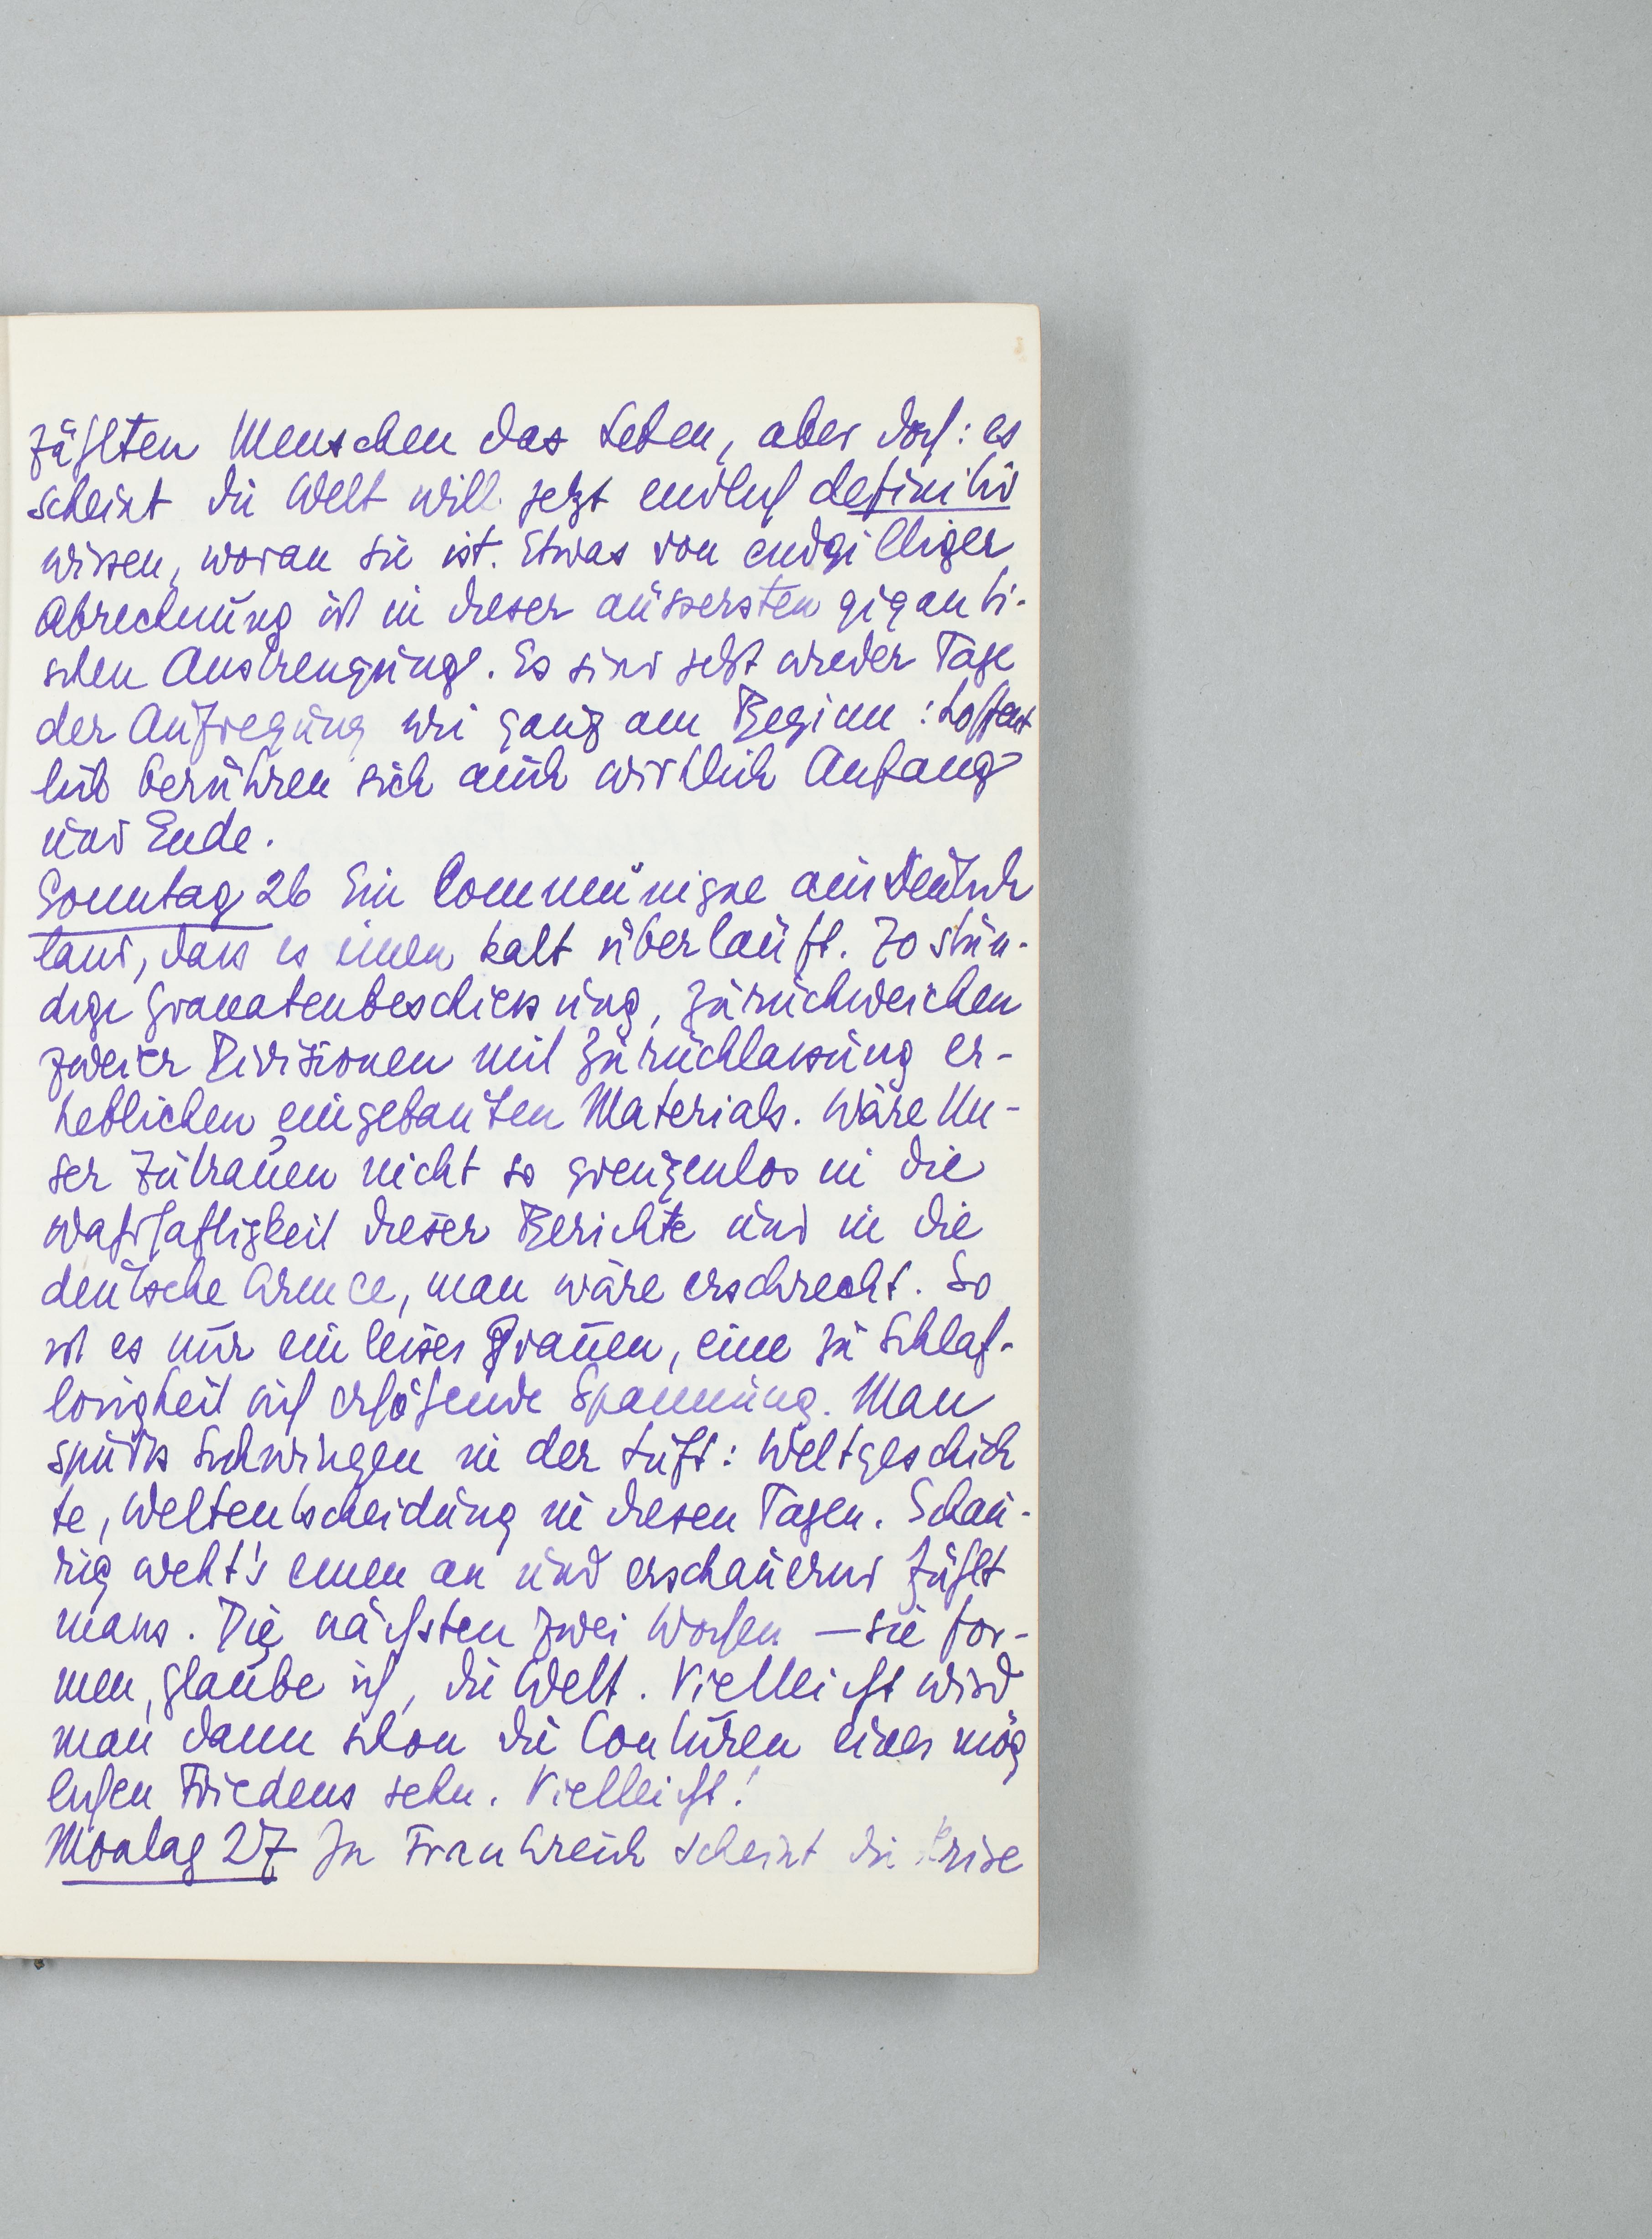 zählten Menschen das Leben, aber doch: es
scheint die Welt will jetzt endlich definitiv
wissen, woran sie ist. Etwas von endgiltiger
Abrechnung ist in dieser äussersten giganti-
schen Anstrengung. Es sind jetzt wieder Tage
der Aufregung wie ganz am Beginn: hoffent
lich berühren sich auch wirklich Anfang
und Ende.
Sonntag 26 Ein Communique aus Deutsch
land, dass es einen kalt überläuft. 70 stün-
dige Granatenbeschiessung, Zurückweichen
zweier Divisionen mit Zurücklassung er-
heblichen eingebauten Materials. Wäre un-
ser Zutrauen nicht so grenzenlos in die
Wahrhaftigkeit dieser Berichte und in die
deutsche Armee, man wäre erschreckt. So
ist es nur ein leises Grauen, eine zu Schlaf-
losigkeit sich erhöhende Spannung. Man
spürts Schwingen in der Luft: Weltgeschich
te, Weltentscheidung in diesen Tagen. Schau-
rig weht's einen an und erschauernd fühlt
mans. Die nächsten zwei Wochen – sie for-
men, glaube ich, die Welt. Vielleicht wird
man dann schon die Conturen eines mög
lichen Friedens sehn. Vielleicht!
Montag 27 In Frankreich scheint die Krise